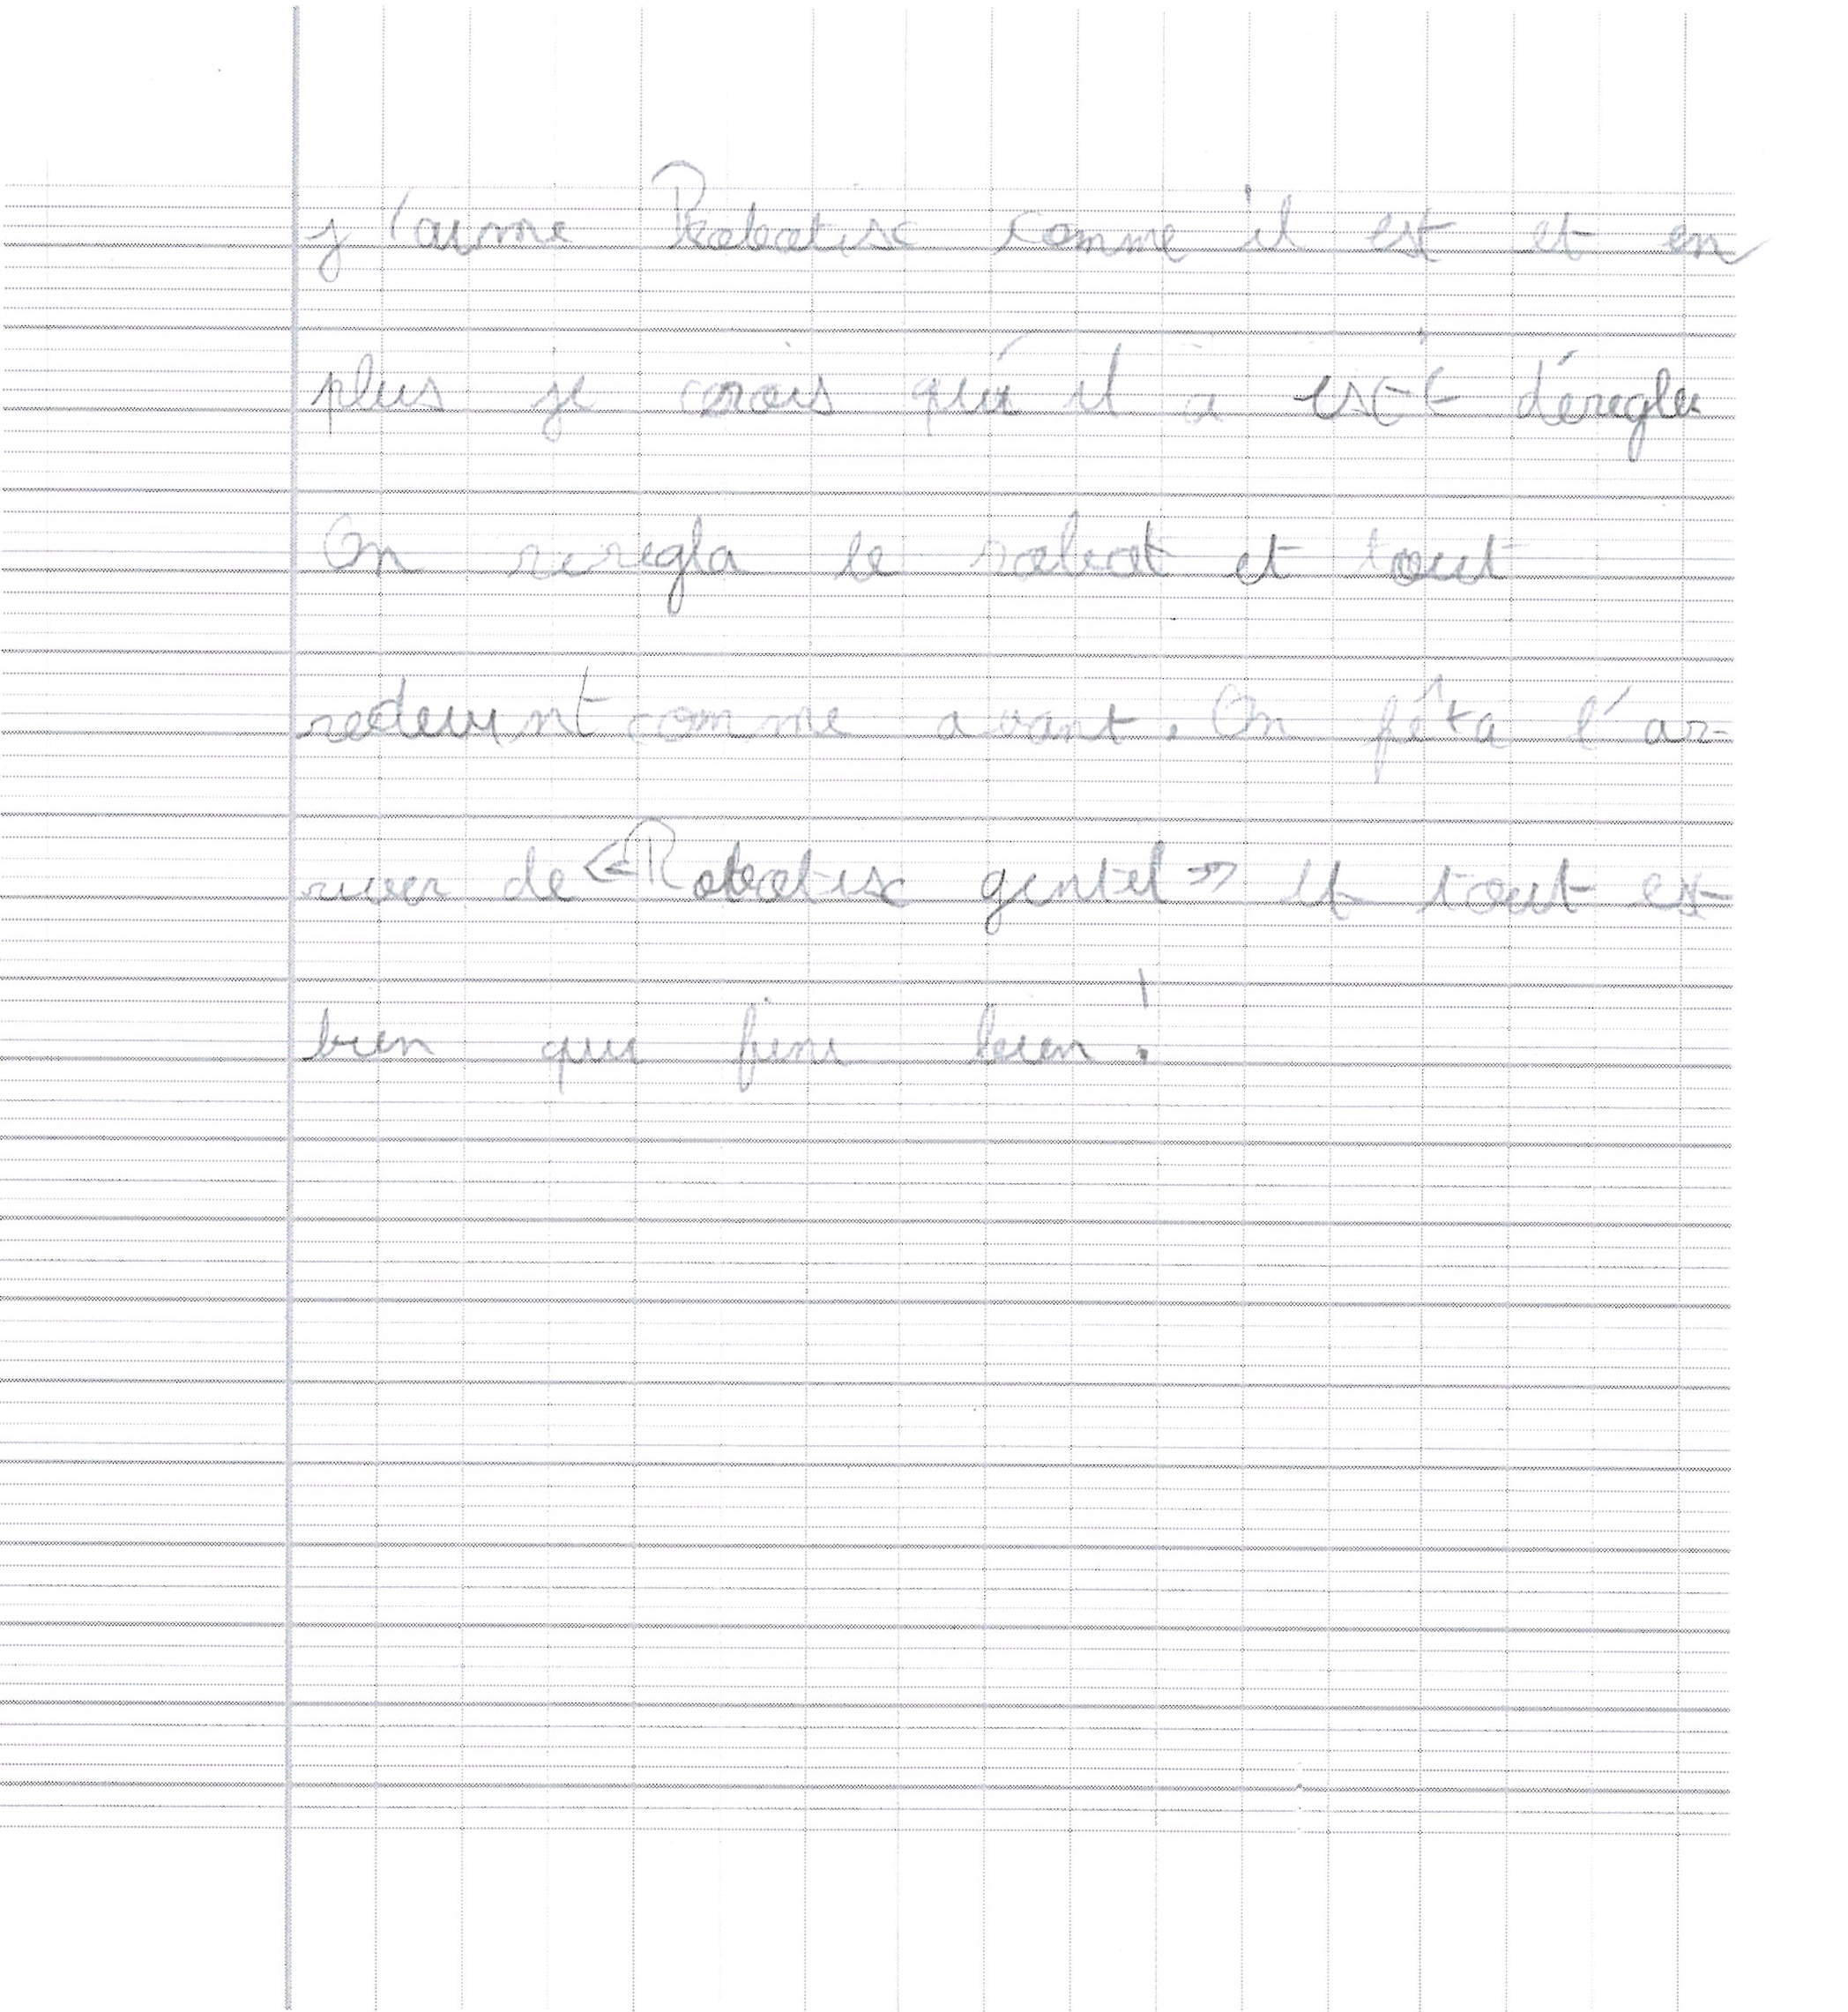 j'aime Robotisc comme il est et en
plus je crois qu'il a est déregler
On reregla le robot et tout
redevint comme avant. On fêta l'ar-
river de «Robotisc gentil» et tout est
bien qui fini bien !